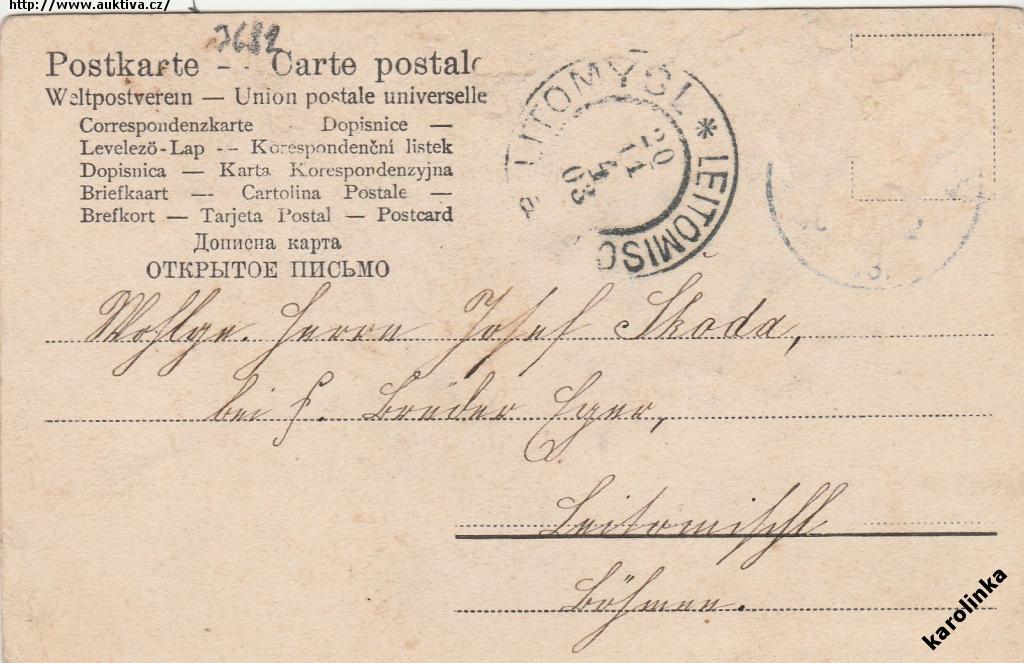 http://www.auktiva.cz/
7682
Postkarte - - Carte postale
Weltpostverein — Union postale universelle
Correspondenzkarte Dopisnice —
Levelező-Lap -- Korespondenční listek
Dopisnica — Karta Korespondenzyjna
Briefkaart — Cartolina Postale —
Brefkort — Tarjeta Postal — Postcard
Дописна карта
ОТКРЫТОЕ ПИСЬМО
LITOMYŠL * LEITOMISC
20
11
4
03
Wohlge. Herrn Josef Škoda,
bei F. Brüder Eger,
Leitomischl
Böhmen.
karolinka